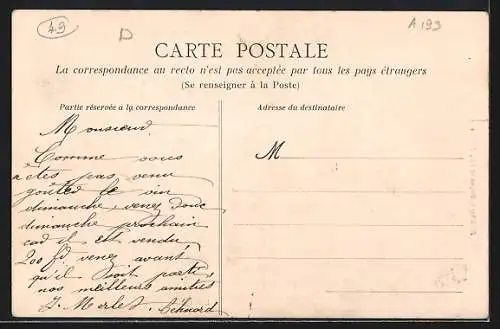 49
D
A 193
CARTE POSTALE
La correspondance au recto n'est pas acceptée par tous les pays étrangers
(Se renseigner à la Poste)
Partie réservée a la correspondance
Adresse du destinataire
M
Monsieur
Comme vous
êtes pas venu
goûtez le vin
dimanche, venez donc
dimanche prochain
car il est vendu
200 fr. venez avant
qu'il soit parti
nos meilleurs amitiés
J. Merlet. Béhuard